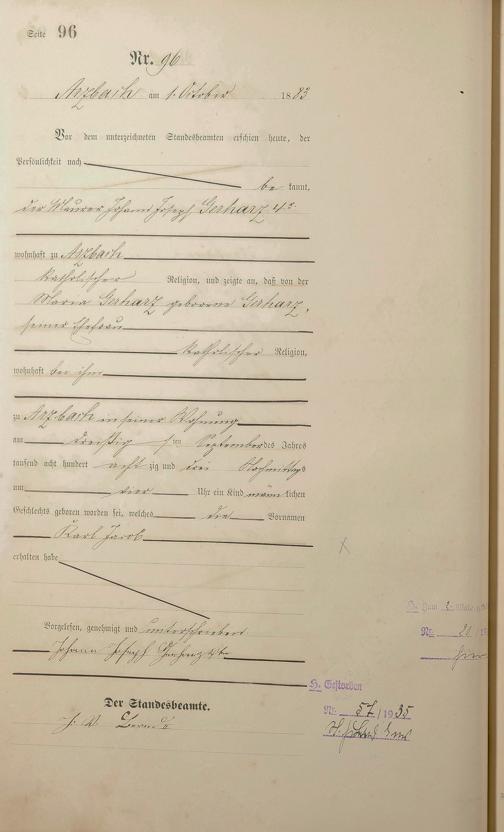 Seite 96
Nr. 96
Arzbach am 1. October 1883
Vor dem unterzeichneten Standesbeamten erschien heute, der
Persönlichkeit nach
be kannt,
der Maurer Johann Joseph Gerharz 4r
wohnhaft zu Arzbach
katholischer Religion, und zeigte an, daß von der
Maria Gerharz geborene Gerharz,
seiner Ehefrau
katholischer Religion,
wohnhaft bei ihm
zu Arzbach in seiner Wohnung
am dreißig sten September des Jahres
tausend acht hundert acht zig und drei Nachmittags
um vier Uhr ein Kind männ lichen
Geschlechts geboren worden sei, welches die Vornamen
Karl Jacob
erhalten habe
Vorgelesen, genehmigt und unterschrieben
Johann Joseph Gerharz 4te
Der Standesbeamte.
H. Gestorben
Nr. 57 / 1935
Nr. 21 / 19